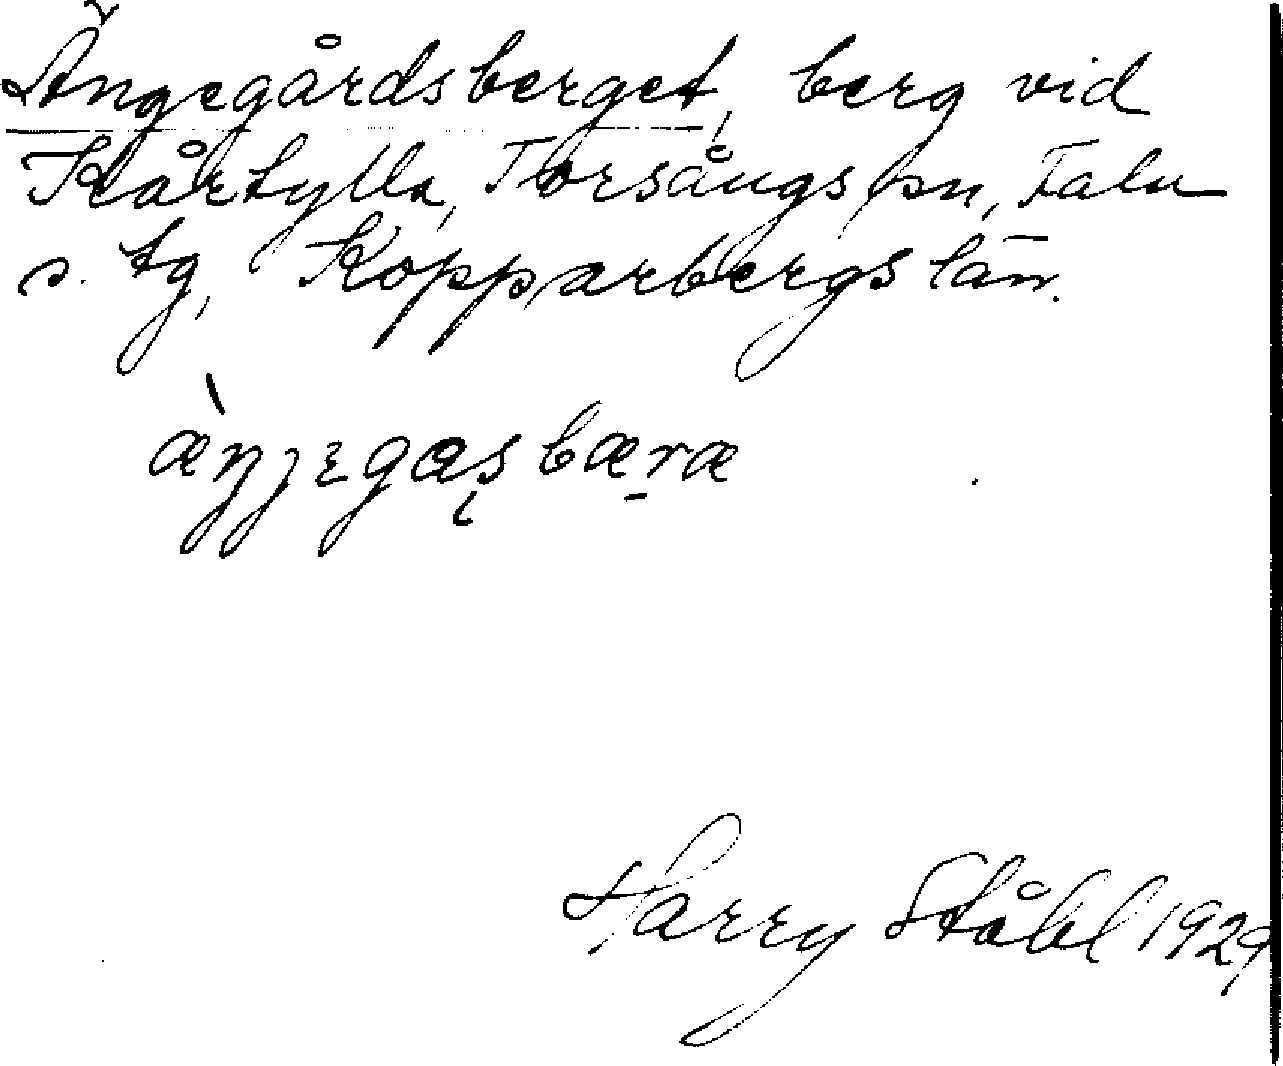 Ängegårdsberget, berg vid
Kårtylla, Torsångs sn, Falu
s. tg, Kopparbergs län.
Harry Ståhl 1929